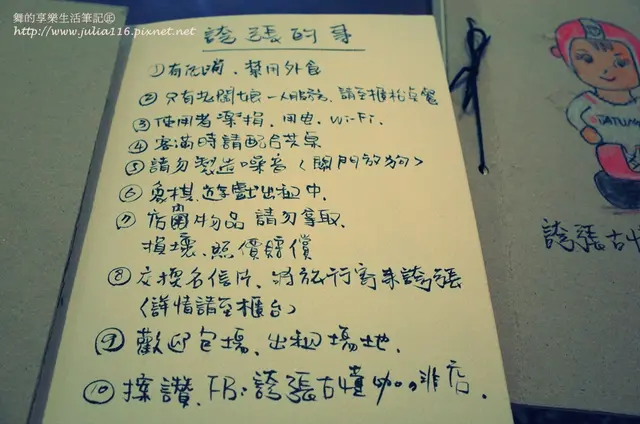 舞的享樂生活筆記
http://www.julia116.pixnet.net
誇張的事
①有低消、禁用外食
②只有老闆娘一人服務,請至櫃枱點餐
③使用者潔捐、用电、Wi-Fi.
④客滿時請配合共桌
⑤請勿製造噪音(關門放狗)
⑥象棋.遊戲出租中.
⑦店內物品請勿拿取.
損壞.照價賠償
⑧交換名信片、將旅行寄來誇張
(詳情請至櫃台)
⑨歡迎包場、出租場地.
⑩按讚、FB:誇張古懂咖啡店.
TATUM
誇張古懂